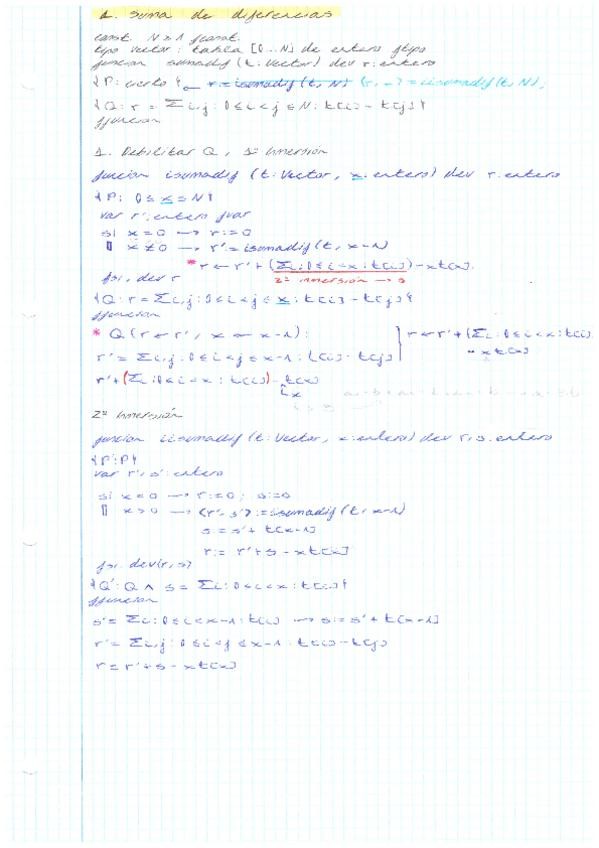 1. Suma de diferencias
const. N ≥ 1 fconst.
tipo Vector: tabla [0...N] de entero ftipo
función sumadif (t: Vector) dev r: entero
{P: cierto} ← r:=isumadif(t, N) (r, -) := iisumadif(t, N);
{Q: r = Σi,j: 0≤i<j≤N: t[i] - t[j]}
ffunción
1. Debilitar Q, 1ª Inmersión
función isumadif (t: Vector, x: entero) dev r: entero
{P: 0≤x≤N}
var r': entero fvar
si x=0 → r:=0
▯ x≠0 → r'=isumadif(t, x-1)
* r ← r'+(Σi:0≤i<x: t[i]) - xt[x]
fsi, dev r 2ª inmersión → s
{Q: r=Σi,j: 0≤i<j≤x: t[i]-t[j]}
ffunción
* Q(r←r', x←x-1):
r'=Σi,j: 0≤i<j≤x-1: t[i]-t[j] r←r'+(Σi:0≤i<x: t[i]
r'+(Σi:0≤i<x: t[i]) - t[x] - xt[x]
i x
2ª Inmersión
función iisumadif (t: Vector, x: entero) dev r,s: entero
{P': P}
var r', s': entero
si x=0 → r:=0; s:=0
▯ x>0 → (r', s') := isumadif(t, x-1)
s=s'+t[x-1]
r:=r'+s-xt[x]
fsi. dev(r,s)
{Q': Q ∧ s=Σi:0≤i<x: t[i]}
ffunción
s'=Σi:0≤i<x-1: t[i] → s:=s'+t[x-1]
r'=Σi,j: 0≤i<j≤x-1: t[i]-t[j]
r=r'+s-xt[x]